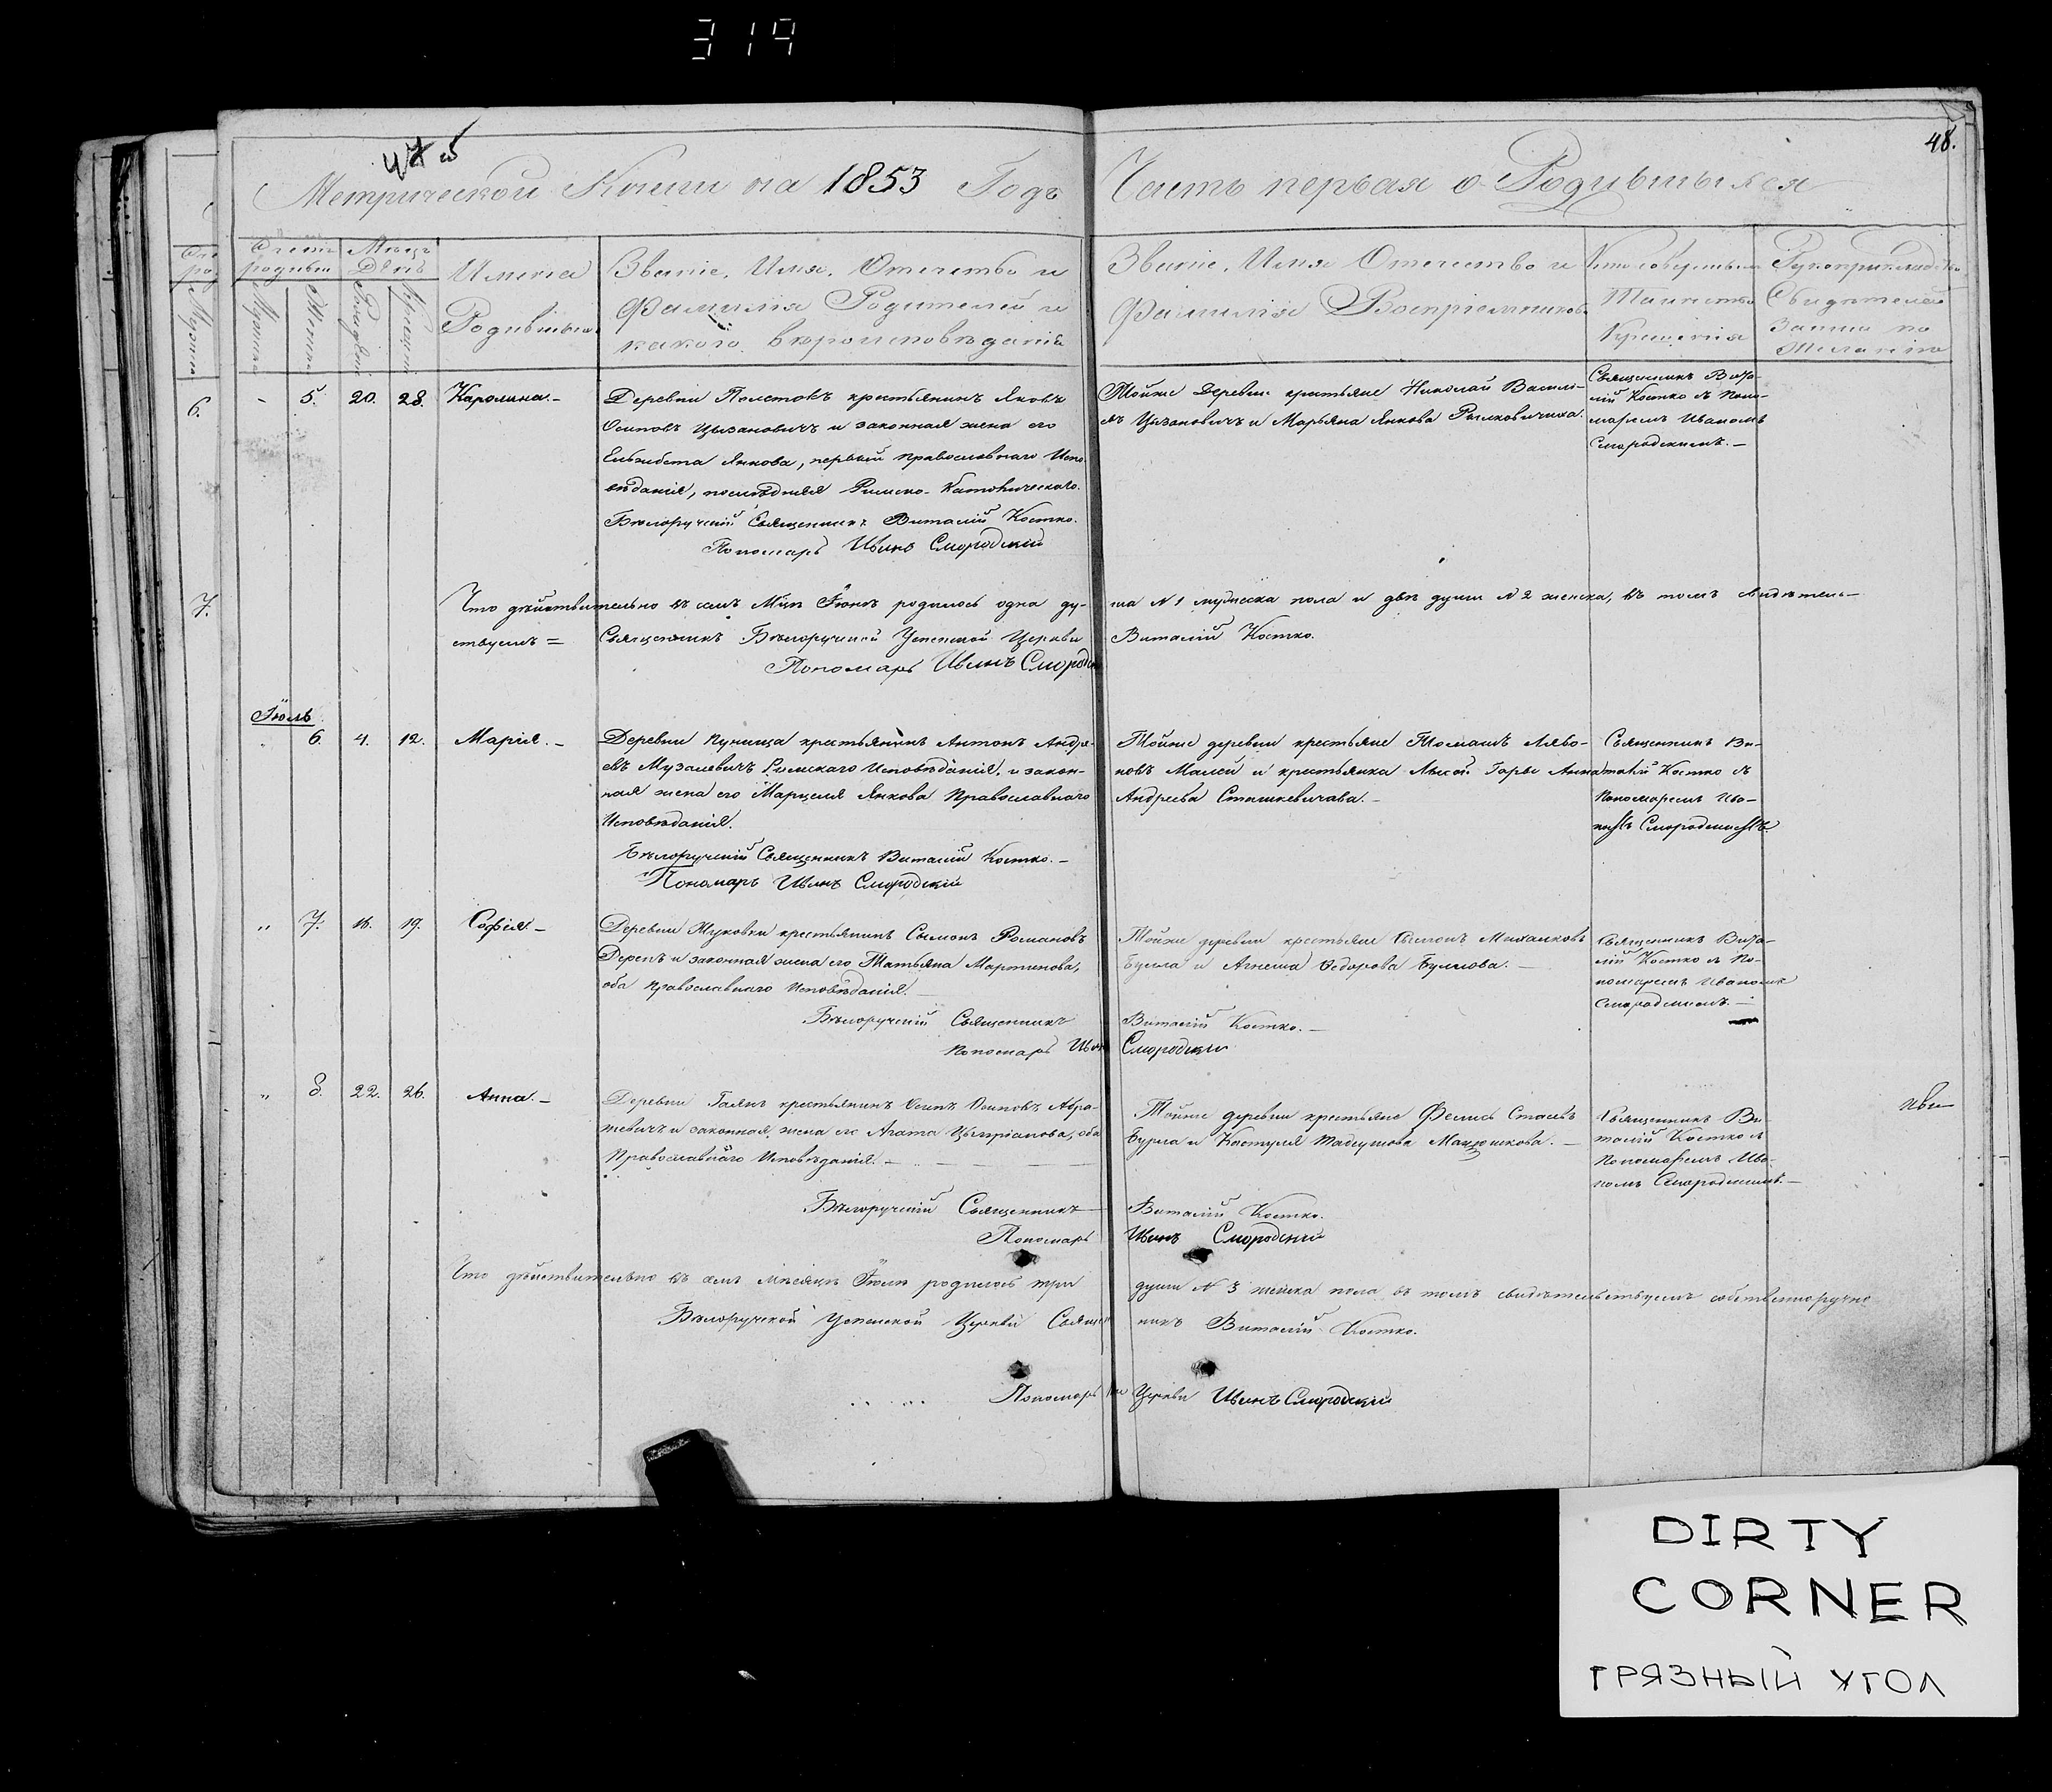 319
48.
Метрической Книги на 1853 Годъ
Часть первая о Родившихся
Мѣсяцъ
День
Мужеска
Женска
Рожденія
Крещенія
Имена
Родившихся
Званіе, Имя, Отечество и
Фамилія Родителей и
какого вѣроисповѣданія
Званіе, Имя Отечество и
Фамилія Воспріемниковъ
Кто совершалъ
Таинство
Крещенія
Рукоприкладство
Свидѣтелей
записи по
желанію
6.
- 5. 20. 28. Каролина. -
Деревни крестьянинъ Яковъ
Осиповъ Цызановичъ и законная жена его
Ельжбета Янкова, первый православнаго Испо-
вѣданія, послѣдняя Римско-Католическаго.
Бѣлоручскій Священникъ Виталій Костко.
Пономарь Иванъ Смородскій
Тойже Деревни крестьяне Николай Василь-
евъ Цызановичъ и Марьяна Янкова Рымковичиха.
Священникъ Вита-
лій Костко съ Поно-
маремъ Иваномъ
Смородскимъ. -
7.
Что дѣйствительно въ семъ Мцѣ Іюнѣ родилось одна ду-
ша N 1 мужеска пола и двѣ души N 2 женска, въ томъ свидѣтель-
ствуемъ =
Священникъ Бѣлоручской Успенской Церкви
Виталій Костко.
Пономарь Иванъ Смородскій
Іюль
" 6. 4. 12. Марія. -
Деревни Пуница крестьянинъ Антонъ Андре-
евъ Музалевичъ Римскаго Исповѣданія, и закон-
ная жена его Марцеля Янкова Православнаго
Исповѣданія.
Бѣлоручскій Священникъ Виталій Костко. -
Пономарь Иванъ Смородскій
Тойже деревни крестьяне Томашъ Ляво-
новъ Малей и крестьянка Лысой Горы Анна
Андреева Сташкевичава. -
Священникъ Ви-
талій Костко съ
Пономаремъ Ива-
номъ Смородскимъ
" 7. 16. 19. Софія. -
Деревни Жуковки крестьянинъ Сымонъ Романовъ
Дерепъ и законная жена его Татьяна Мартинова,
оба православнаго Исповѣданія. -
Бѣлоручскій Священникъ
Виталій Костко. -
Пономарь Иванъ
Смородскій
Тойже деревни крестьяне Сымонъ Михалковъ
и Агнеша Ѳедорова
Священникъ Вита-
лій Костко съ По-
номаремъ Иваномъ
Смородскимъ. -
" 8. 22. 26. Анна. -
Деревни Гаянъ крестьянинъ Осипъ Осиповъ Абра-
жевичъ и законная жена его Агата Цыпріанова, оба
Православнаго Исповѣданія. -
Бѣлоручскій Священникъ
Виталій Костко.
Пономарь
Иванъ Смородскій
Тойже деревни крестьяне Фелисъ Стасевъ
Бурла и Костуля Тадеушова Мацюшкова. -
Священникъ Ви-
талій Костко съ
Пономаремъ Ива-
номъ Смородскимъ. -
Что дѣйствительно въ семъ мѣсяцѣ Іюлѣ родилось три
души N 3 женска пола въ томъ свидѣтельствуемъ собственноручно
Бѣлоручской Успенской Церкви Священ-
никъ Виталій Костко.
Пономарь
Церкви Иванъ Смородскій
DIRTY
CORNER
ГРЯЗНЫЙ УГОЛ